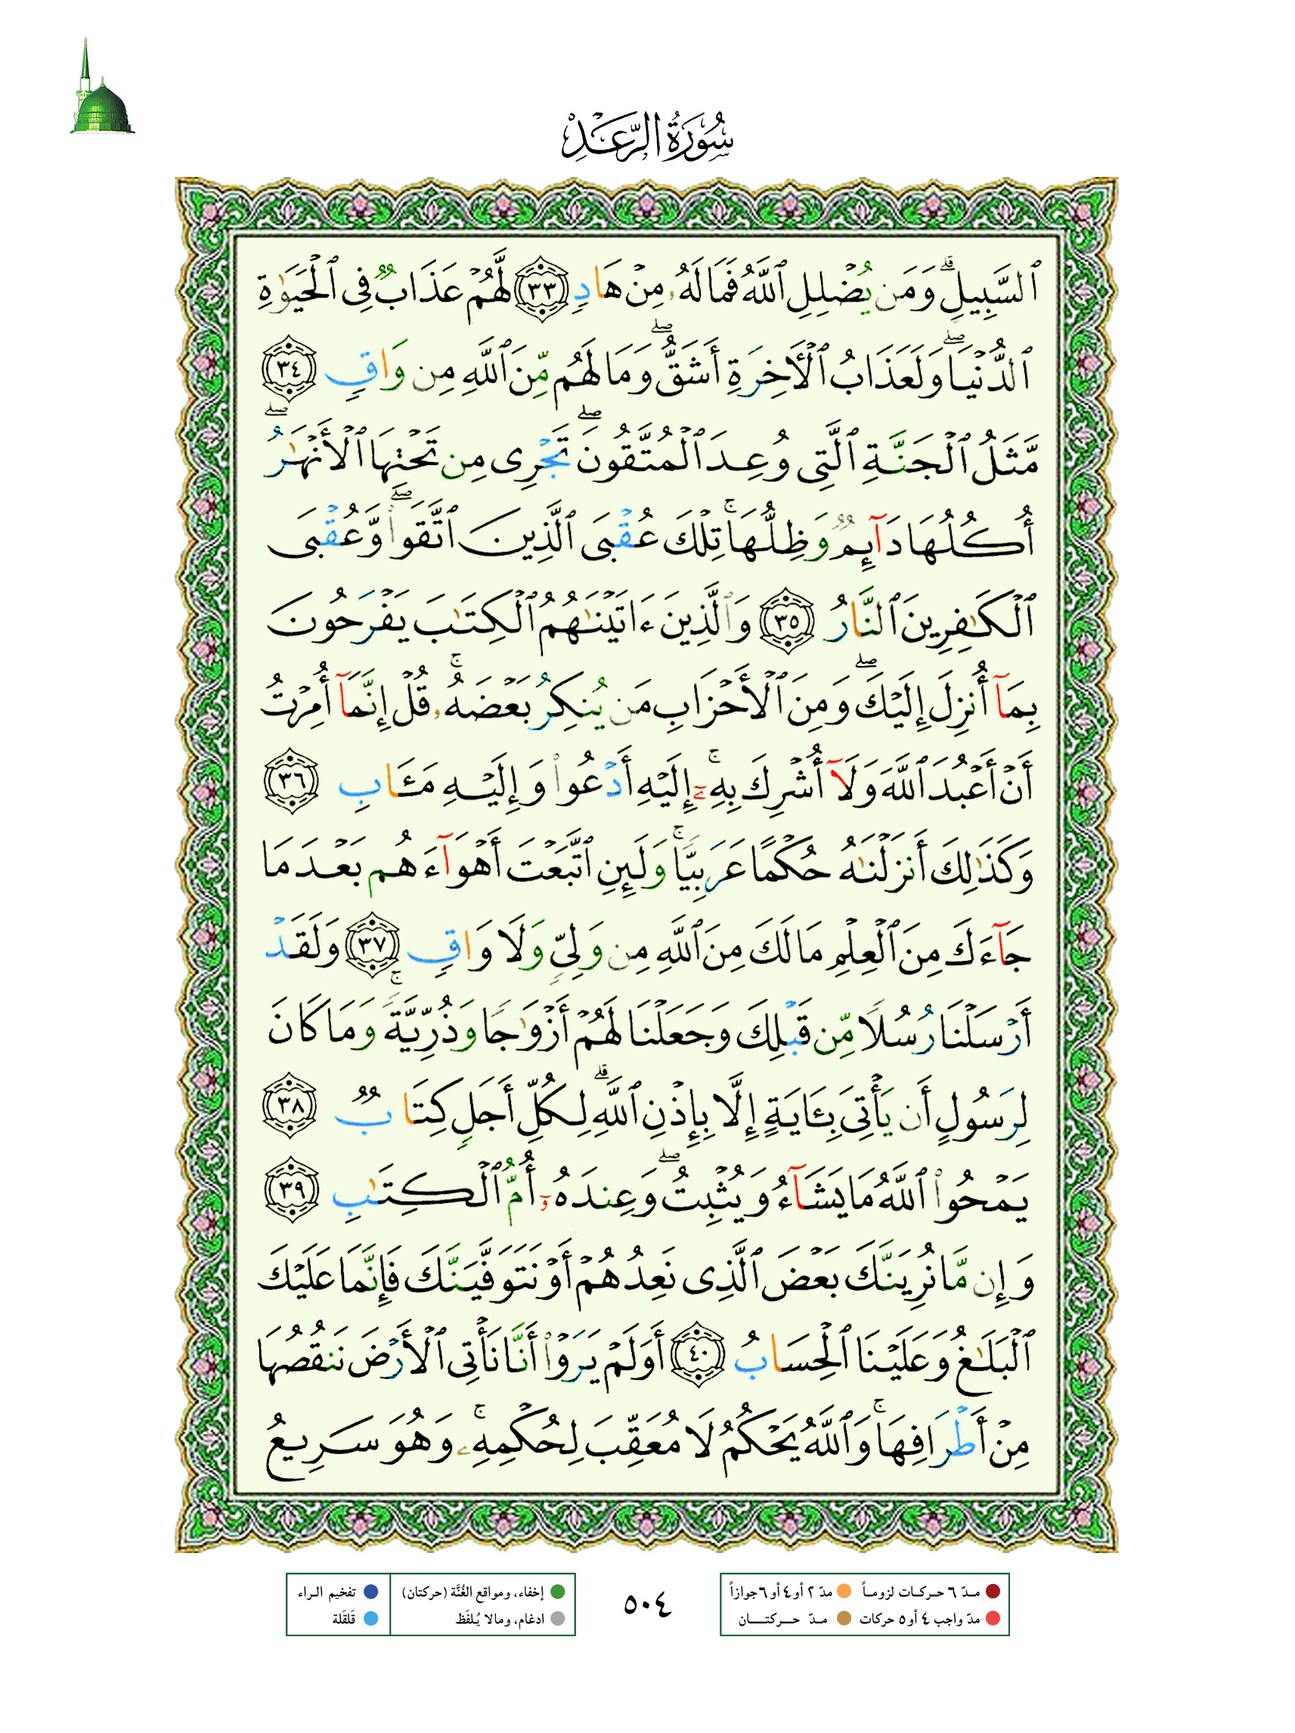 سُورَةُ الرَّعْدِ
ٱلسَّبِيلِۗ وَمَن يُضْلِلِ ٱللَّهُ فَمَا لَهُۥ مِنْ هَادٍ ﴿٣٣﴾ لَّهُمْ عَذَابٌ فِى ٱلْحَيَوٰةِ
ٱلدُّنْيَاۖ وَلَعَذَابُ ٱلْأَخِرَةِ أَشَقُّۖ وَمَا لَهُم مِّنَ ٱللَّهِ مِن وَاقٍ ﴿٣٤﴾
مَّثَلُ ٱلْجَنَّةِ ٱلَّتِى وُعِدَ ٱلْمُتَّقُونَۖ تَجْرِى مِن تَحْتِهَا ٱلْأَنْهَٰرُۖ
أُكُلُهَا دَآئِمٌ وَظِلُّهَاۚ تِلْكَ عُقْبَى ٱلَّذِينَ ٱتَّقَوا۟ۖ وَّعُقْبَى
ٱلْكَٰفِرِينَ ٱلنَّارُ ﴿٣٥﴾ وَٱلَّذِينَ ءَاتَيْنَٰهُمُ ٱلْكِتَٰبَ يَفْرَحُونَ
بِمَآ أُنزِلَ إِلَيْكَۖ وَمِنَ ٱلْأَحْزَابِ مَن يُنكِرُ بَعْضَهُۥۚ قُلْ إِنَّمَآ أُمِرْتُ
أَنْ أَعْبُدَ ٱللَّهَ وَلَآ أُشْرِكَ بِهِۦٓۚ إِلَيْهِ أَدْعُوا۟ وَإِلَيْهِ مَـَٔابِ ﴿٣٦﴾
وَكَذَٰلِكَ أَنزَلْنَٰهُ حُكْمًا عَرَبِيًّاۚ وَلَئِنِ ٱتَّبَعْتَ أَهْوَآءَهُم بَعْدَ مَا
جَآءَكَ مِنَ ٱلْعِلْمِ مَا لَكَ مِنَ ٱللَّهِ مِن وَلِىٍّ وَلَا وَاقٍ ﴿٣٧﴾ وَلَقَدْ
أَرْسَلْنَا رُسُلًا مِّن قَبْلِكَ وَجَعَلْنَا لَهُمْ أَزْوَٰجًا وَذُرِّيَّةًۚ وَمَا كَانَ
لِرَسُولٍ أَن يَأْتِىَ بِـَٔايَةٍ إِلَّا بِإِذْنِ ٱللَّهِۗ لِكُلِّ أَجَلٍ كِتَابٌ ﴿٣٨﴾
يَمْحُوا۟ ٱللَّهُ مَا يَشَآءُ وَيُثْبِتُۖ وَعِندَهُۥٓ أُمُّ ٱلْكِتَٰبِ ﴿٣٩﴾
وَإِن مَّا نُرِيَنَّكَ بَعْضَ ٱلَّذِى نَعِدُهُمْ أَوْ نَتَوَفَّيَنَّكَ فَإِنَّمَا عَلَيْكَ
ٱلْبَلَٰغُ وَعَلَيْنَا ٱلْحِسَابُ ﴿٤٠﴾ أَوَلَمْ يَرَوْا۟ أَنَّا نَأْتِى ٱلْأَرْضَ نَنقُصُهَا
مِنْ أَطْرَافِهَاۚ وَٱللَّهُ يَحْكُمُ لَا مُعَقِّبَ لِحُكْمِهِۦۚ وَهُوَ سَرِيعُ
مدّ ٦ حركات لزوماً مدّ ٢ أو ٤ أو ٦ جوازاً
مدّ واجب ٤ أو ٥ حركات مدّ حركتان
٥٠٤
إخفاء، ومواقع الغُنَّة (حركتان) تفخيم الراء
ادغام، ومالا يُلفَظ قلقلة